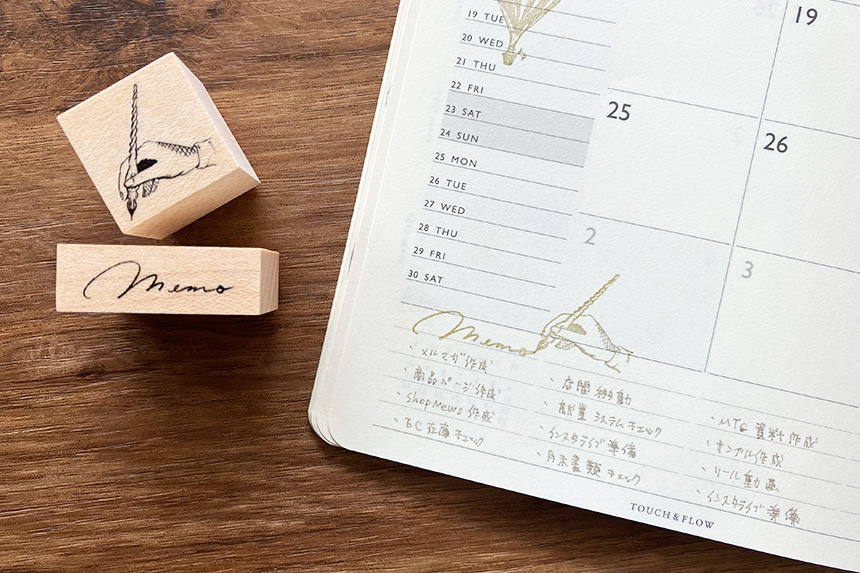 Memo
19 TUE
20 WED
21 THU
22 FRI
23 SAT
24 SUN
25 MON
26 TUE
27 WED
28 THU
29 FRI
30 SAT
19
25
26
2
3
Memo
・メルマガ作成
・商品ページ作成
・shopNews 作成
・EC在庫チェック
・店間移動
・営業システムチェック
・インスタライブ準備
・月末書類チェック
・MTG資料作成
・サンプル作成
・リール動画
・インスタライブ準備
TOUCH & FLOW